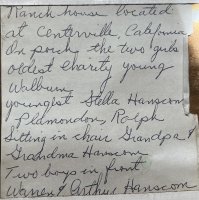 Ranch house located
at Centerville, California
On porch the two girls
oldest Charity young
Walburn
youngest Stella Hanscom
Pldmondon, Ralph
Sitting in chair Grandpa &
Grandma Hanscom
Two boys in front
Warren & Arthur Hanscom